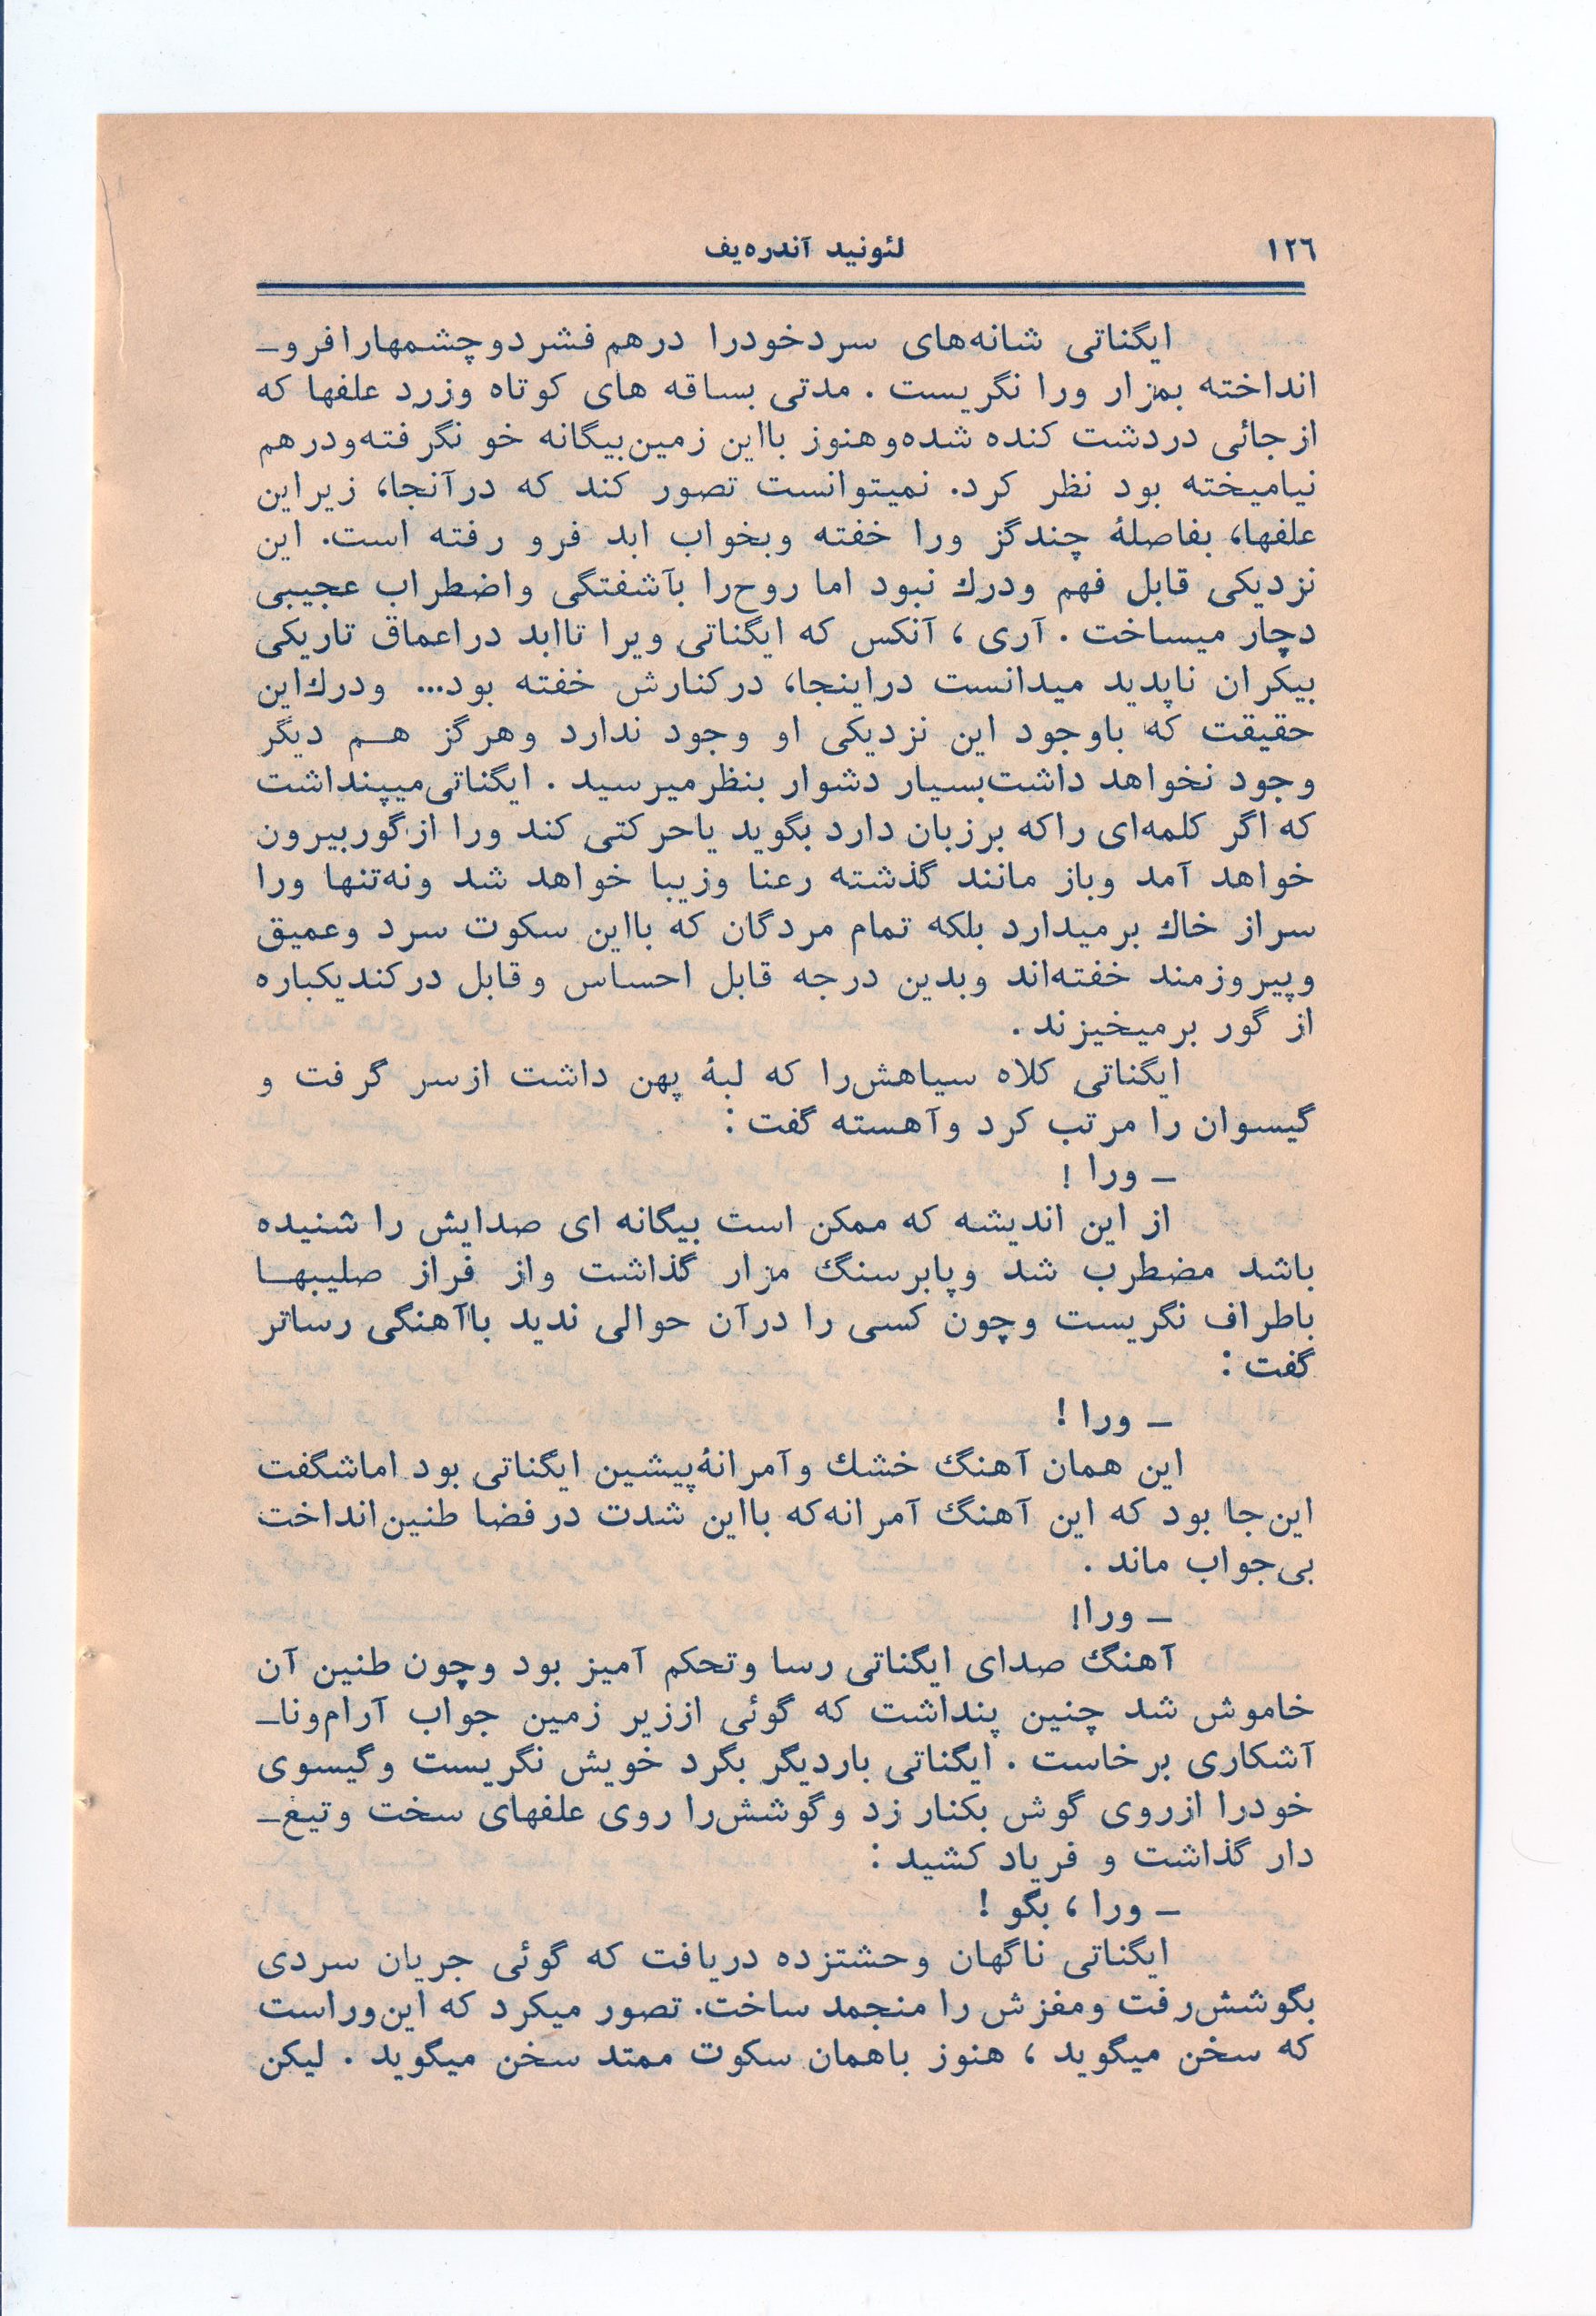 ۱۲٦
لئونید آندره‌یف
ایگناتی شانه‌های سردخودرا درهم‌فشردوچشمهارافرو-
انداخته بمزار ورا نگریست . مدتی بساقه های کوتاه وزرد علفها که
ازجائی دردشت کنده شده‌وهنوز بااین زمین‌بیگانه خو نگرفته‌ودرهم
نیامیخته بود نظر کرد. نمیتوانست تصور کند که درآنجا، زیراین
علفها، بفاصلهٔ چندگز ورا خفته وبخواب ابد فرو رفته است. این
نزدیکی قابل فهم ودرك نبود اما روح‌را بآشفتگی واضطراب عجیبی
دچار میساخت . آری ، آنکس که ایگناتی ویرا تاابد دراعماق تاریکی
بیکران ناپدید میدانست دراینجا، درکنارش خفته بود... ودرك‌این
حقیقت که باوجود این نزدیکی او وجود ندارد وهرگز هم دیگر
وجود نخواهد داشت‌بسیار دشوار بنظرمیرسید . ایگناتی‌میپنداشت
که اگر کلمه‌ای راکه برزبان دارد بگوید یاحرکتی کند ورا ازگوربیرون
خواهد آمد وباز مانند گذشته رعنا وزیبا خواهد شد ونه‌تنها ورا
سراز خاك برمیدارد بلکه تمام مردگان که بااین سکوت سرد وعمیق
وپیروزمند خفته‌اند وبدین درجه قابل احساس وقابل درکندیکباره
از گور برمیخیزند .
ایگناتی کلاه سیاهش‌را که لبهٔ پهن داشت ازسر گرفت و
گیسوان را مرتب کرد وآهسته گفت :
- ورا !
از این اندیشه که ممکن است بیگانه ای صدایش را شنیده
باشد مضطرب شد وپابرسنگ مزار گذاشت واز فراز صلیبها
باطراف نگریست وچون کسی را درآن حوالی ندید باآهنگی رساتر
گفت :
- ورا !
این همان آهنگ خشك وآمرانهٔ‌پیشین ایگناتی بود اماشگفت
این‌جا بود که این آهنگ آمرانه‌که بااین شدت درفضا طنین‌انداخت
بی‌جواب ماند .
- ورا!
آهنگ صدای ایگناتی رسا وتحکم آمیز بود وچون طنین آن
خاموش شد چنین پنداشت که گوئی اززیر زمین جواب آرام‌ونا-
آشکاری برخاست . ایگناتی باردیگر بگرد خویش نگریست وگیسوی
خودرا ازروی گوش بکنار زد وگوشش‌را روی علفهای سخت وتیغ-
دار گذاشت و فریاد کشید :
- ورا ، بگو !
ایگناتی ناگهان وحشتزده دریافت که گوئی جریان سردی
بگوشش‌رفت ومغزش را منجمد ساخت. تصور میکرد که این‌وراست
که سخن میگوید ، هنوز باهمان سکوت ممتد سخن میگوید . لیکن